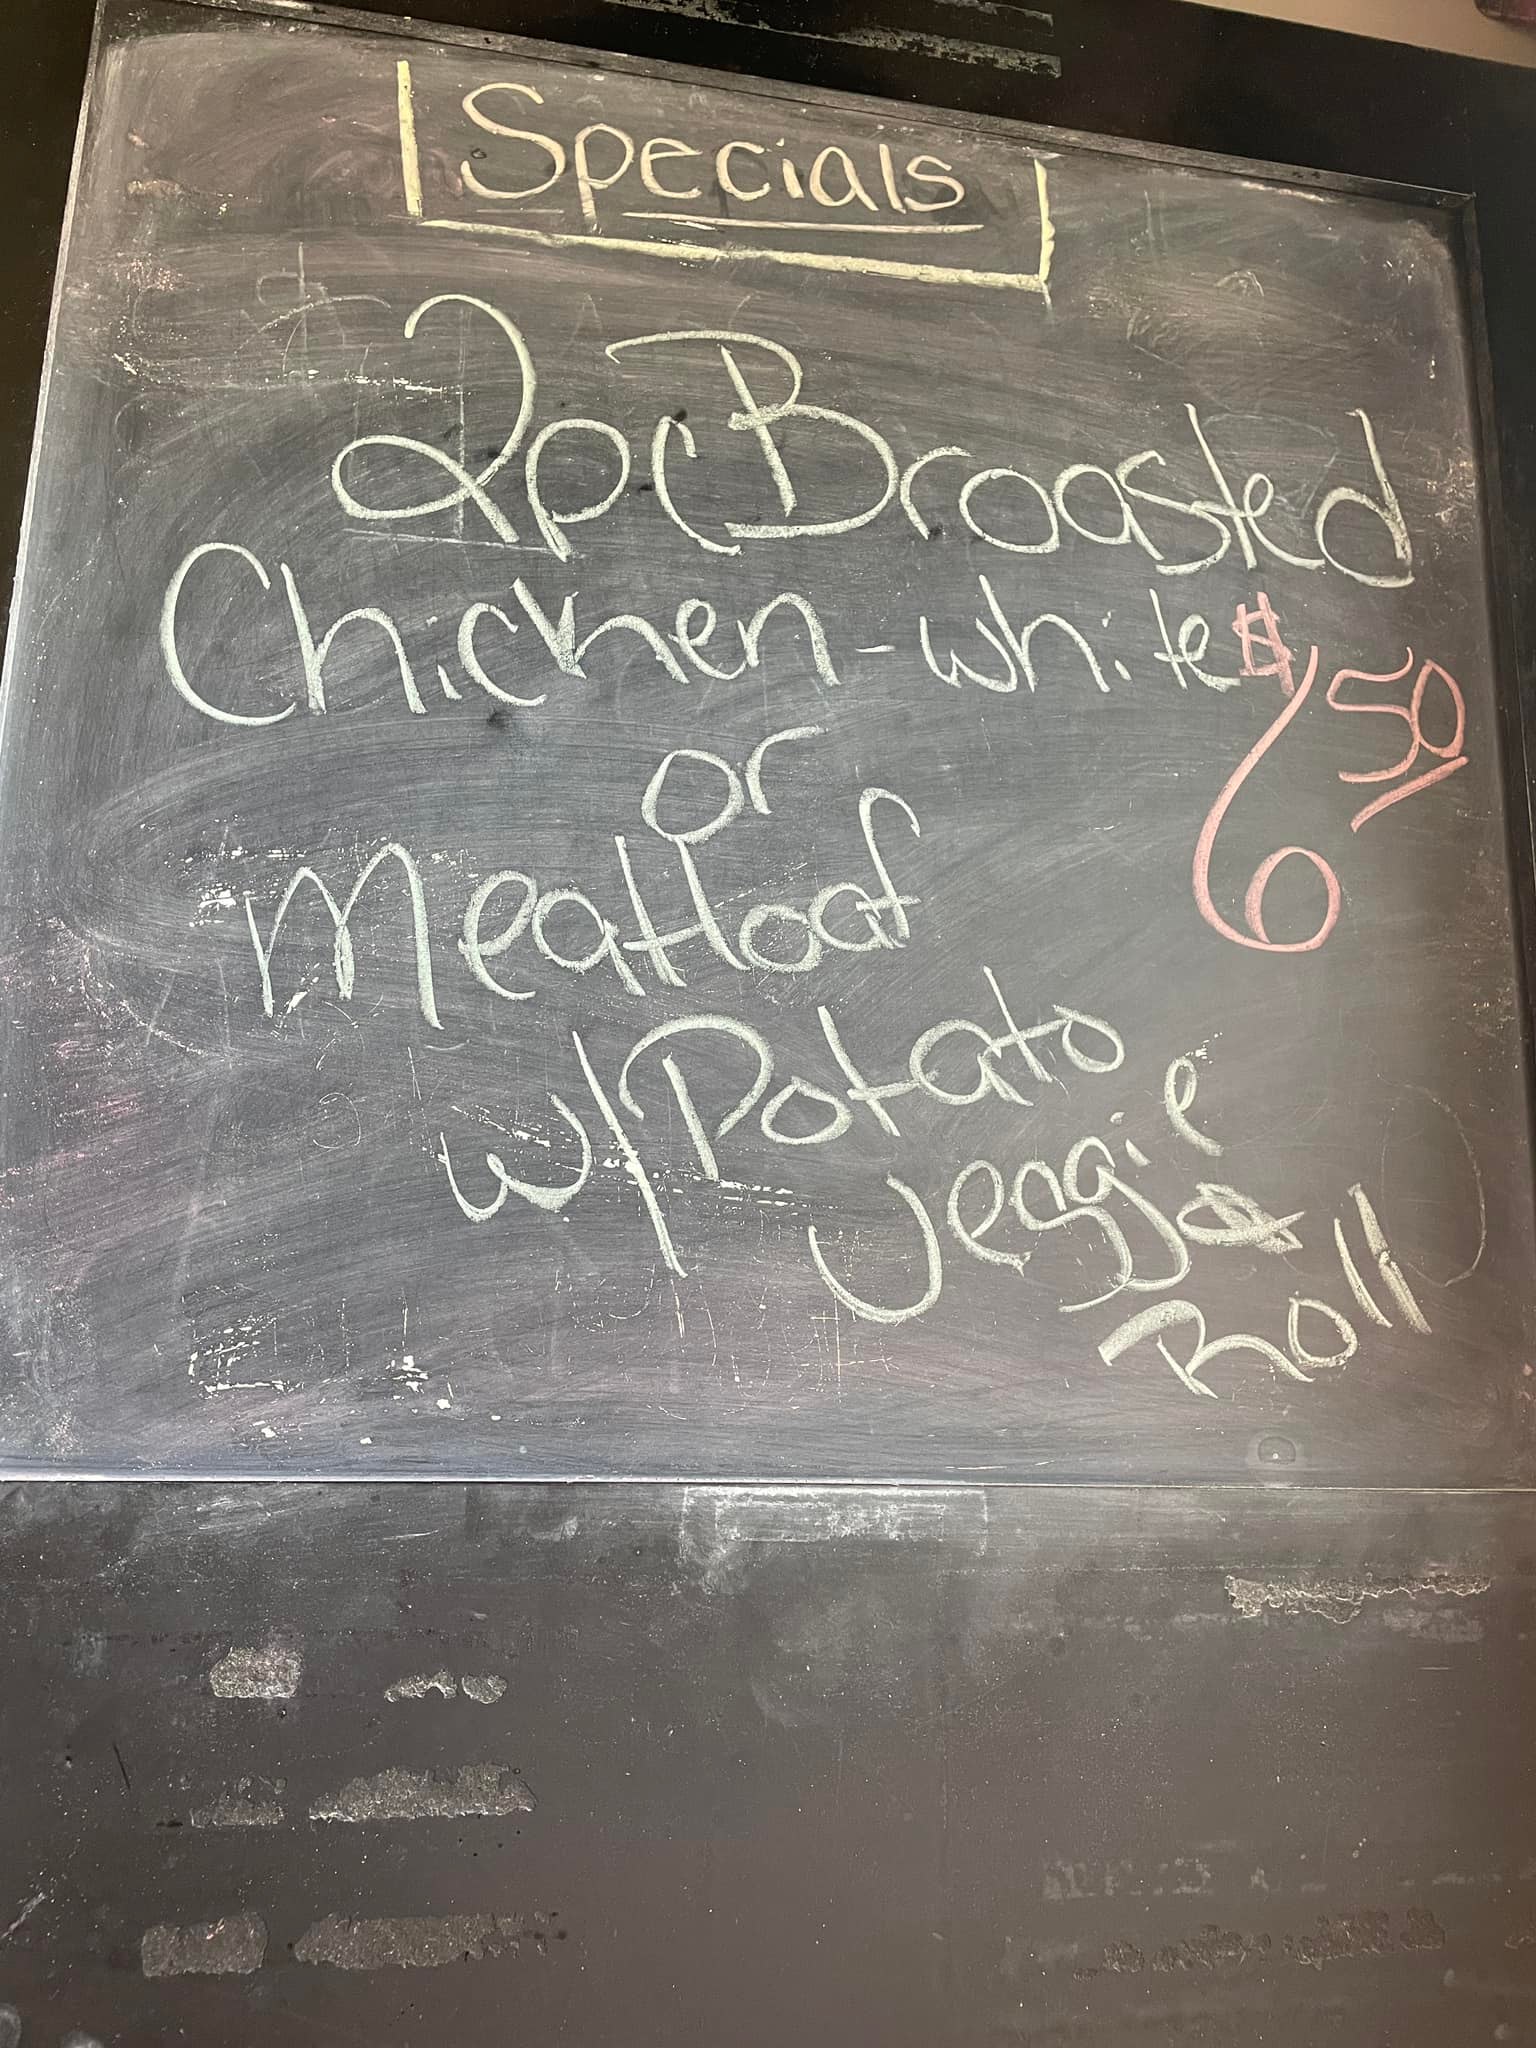 Specials
2pc Broasted
Chicken - white $6 50
or
Meatloaf
w/ Potato
Veggie &
Roll